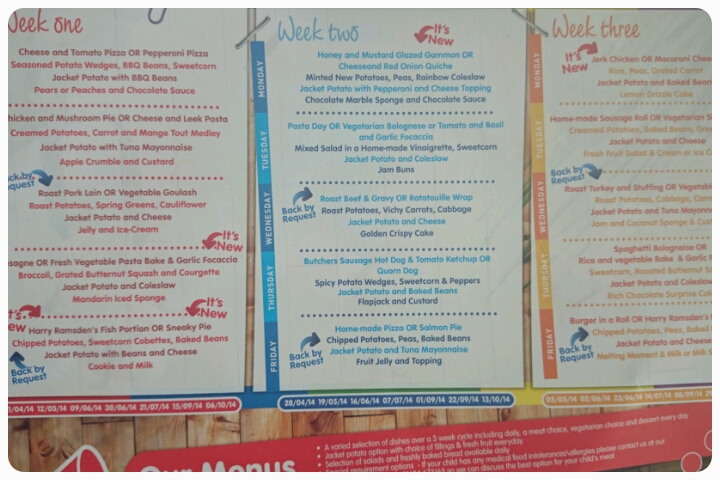 Week one
Cheese and Tomato Pizza OR Pepperoni Pizza
Seasoned Potato Wedges, BBQ Beans, Sweetcorn
Jacket Potato with BBQ Beans
Pears or Peaches and Chocolate Sauce
Chicken and Mushroom Pie OR Cheese and Leek Pasta
Creamed Potatoes, Carrot and Mange Tout Medley
Jacket Potato with Tuna Mayonnaise
Apple Crumble and Custard
Back by
Request
Roast Pork Loin OR Vegetable Goulash
Roast Potatoes, Spring Greens, Cauliflower
Jacket Potato and Cheese
Jelly and Ice-Cream
It's
New
OR Fresh Vegetable Pasta Bake & Garlic Focaccia
Broccoli, Grated Butternut Squash and Courgette
Jacket Potato and Coleslaw
Mandarin Iced Sponge
It's
New
Harry Ramsden's Fish Portion OR Sneaky Pie
Chipped Potatoes, Sweetcorn Cobettes, Baked Beans
Jacket Potato with Beans and Cheese
Cookie and Milk
Back by
Request
1/04/14 12/05/14 09/06/14 30/06/14 21/07/14 15/09/14 06/10/14
Week two
It's
New
MONDAY
Honey and Mustard Glazed Gammon OR
Cheeseand Red Onion Quiche
Minted New Potatoes, Peas, Rainbow Coleslaw
Jacket Potato with Pepperoni and Cheese Topping
Chocolate Marble Sponge and Chocolate Sauce
TUESDAY
Pasta Day OR Vegetarian Bolognese or Tomato and Basil
and Garlic Focaccia
Mixed Salad in a Home-made Vinaigrette, Sweetcorn
Jacket Potato and Coleslaw
Jam Buns
WEDNESDAY
Back by
Request
Roast Beef & Gravy OR Ratatouille Wrap
Roast Potatoes, Vichy Carrots, Cabbage
Jacket Potato and Cheese
Golden Crispy Cake
THURSDAY
Butchers Sausage Hot Dog & Tomato Ketchup OR
Quorn Dog
Spicy Potato Wedges, Sweetcorn & Peppers
Jacket Potato and Baked Beans
Flapjack and Custard
FRIDAY
Back by
Request
Home-made Pizza OR Salmon Pie
Chipped Potatoes, Peas, Baked Beans
Jacket Potato and Tuna Mayonnaise
Fruit Jelly and Topping
28/04/14 19/05/14 16/06/14 07/07/14 01/09/14 22/09/14 13/10/14
Week three
It's
New
MONDAY
Jerk Chicken OR Macaroni Chee
Rice, Peas, Grated Carrot
Jacket Potato and Baked Beans
Lemon Drizzle Cake
TUESDAY
Home-made Sausage Roll OR Vegetarian S
Creamed Potatoes, Baked Beans, Gre
Jacket Potato and Cheese
Fresh Fruit Salad & Cream or Ice C
WEDNESDAY
Back by
Request
Roast Turkey and Stuffing OR Vegetabl
Roast Potatoes, Cabbage, Carr
Jacket Potato and Tuna Mayonn
Jam and Coconut Sponge & Cus
THURSDAY
Spaghetti Bolognaise OR
Rice and vegetable Bake & Garlic F
Sweetcorn, Roasted Butternut S
Jacket Potato and Coleslaw
Rich Chocolate Surprise Cak
FRIDAY
Back by
Request
Burger in a Roll OR Harry Ramsden's
Chipped Potatoes, Peas, Baked
Jacket Potato and Cheese
Melting Moment & Milk or Milk S
05/05/14 02/06/14 23/06/14 14/07/14 08/09/14 29
Our Menus
• A varied selection of dishes over a 3 week cycle including daily, a meat choice, vegetarian choice and dessert every day
• Jacket potato option with choice of fillings & fresh fruit everyday
• Selection of salads and freshly baked bread available daily
requirement options - If your child has any medical food intolerances/allergies please contact us at our
so we can discuss the best option for your child's meal